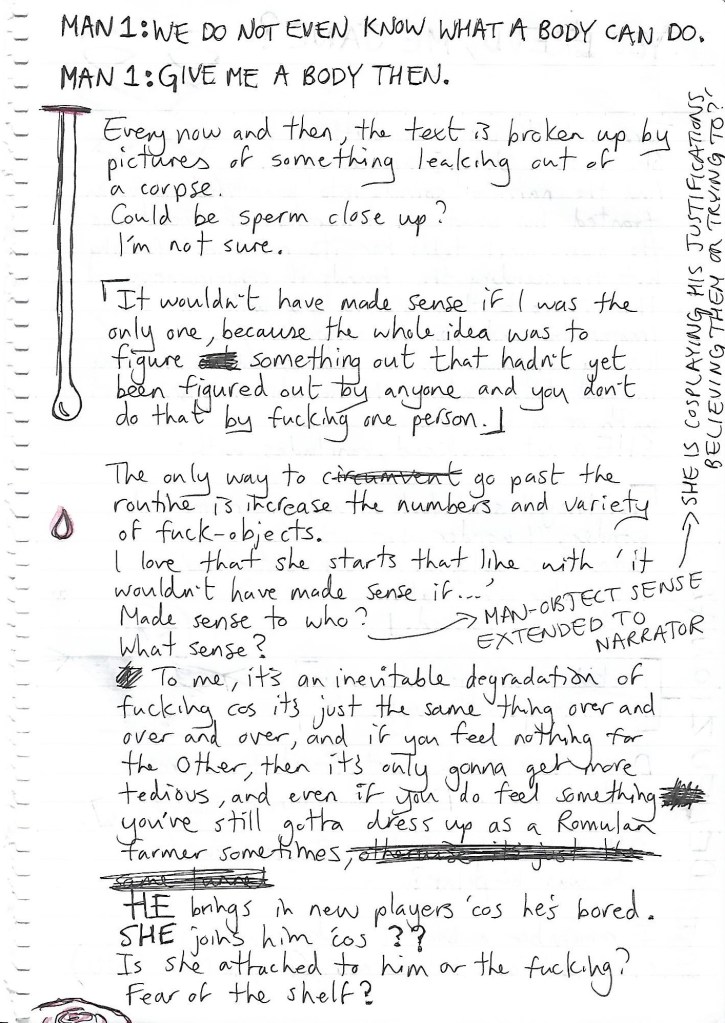 MAN 1: WE DO NOT EVEN KNOW WHAT A BODY CAN DO.
MAN 1: GIVE ME A BODY THEN.
Every now and then, the text is broken up by
pictures of something leaking out of
a corpse.
Could be sperm close up?
I'm not sure.
「It wouldn't have made sense if I was the
only one, because the whole idea was to
figure something out that hadn't yet
been figured out by anyone and you don't
do that by fucking one person.」
The only way to circumvent go past the
routine is increase the numbers and variety
of fuck-objects.
I love that she starts that line with 'it
wouldn't have made sense if...'
Made sense to who?
What sense?
MAN-OBJECT SENSE
EXTENDED TO
NARRATOR
SHE IS COSPLAYING HIS JUSTIFICATIONS,
BELIEVING THEM OR TRYING TO?
To me, it's an inevitable degradation of
fucking cos it's just the same thing over and
over and over, and if you feel nothing for
the Other, then it's only gonna get more
tedious, and even if you do feel something
you've still gotta dress up as a Romulan
farmer sometimes, otherwise it's just the
same
HE brings in new players 'cos he's bored.
SHE joins him 'cos ??
Is she attached to him or the fucking?
Fear of the shelf?